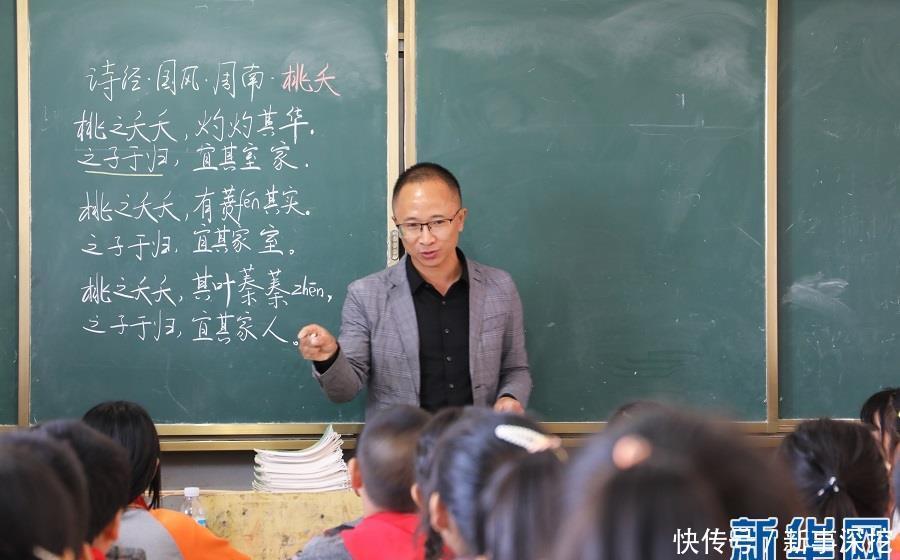 诗经·国风·周南·桃夭
桃之夭夭，灼灼其华.
之子于归，宜其室家.
桃之夭夭，有蕡fén其实.
之子于归，宜其家室。
桃之夭夭，其叶蓁蓁zhēn，
之子于归，宜其家人。
新华网
快传号 / 新事深挖